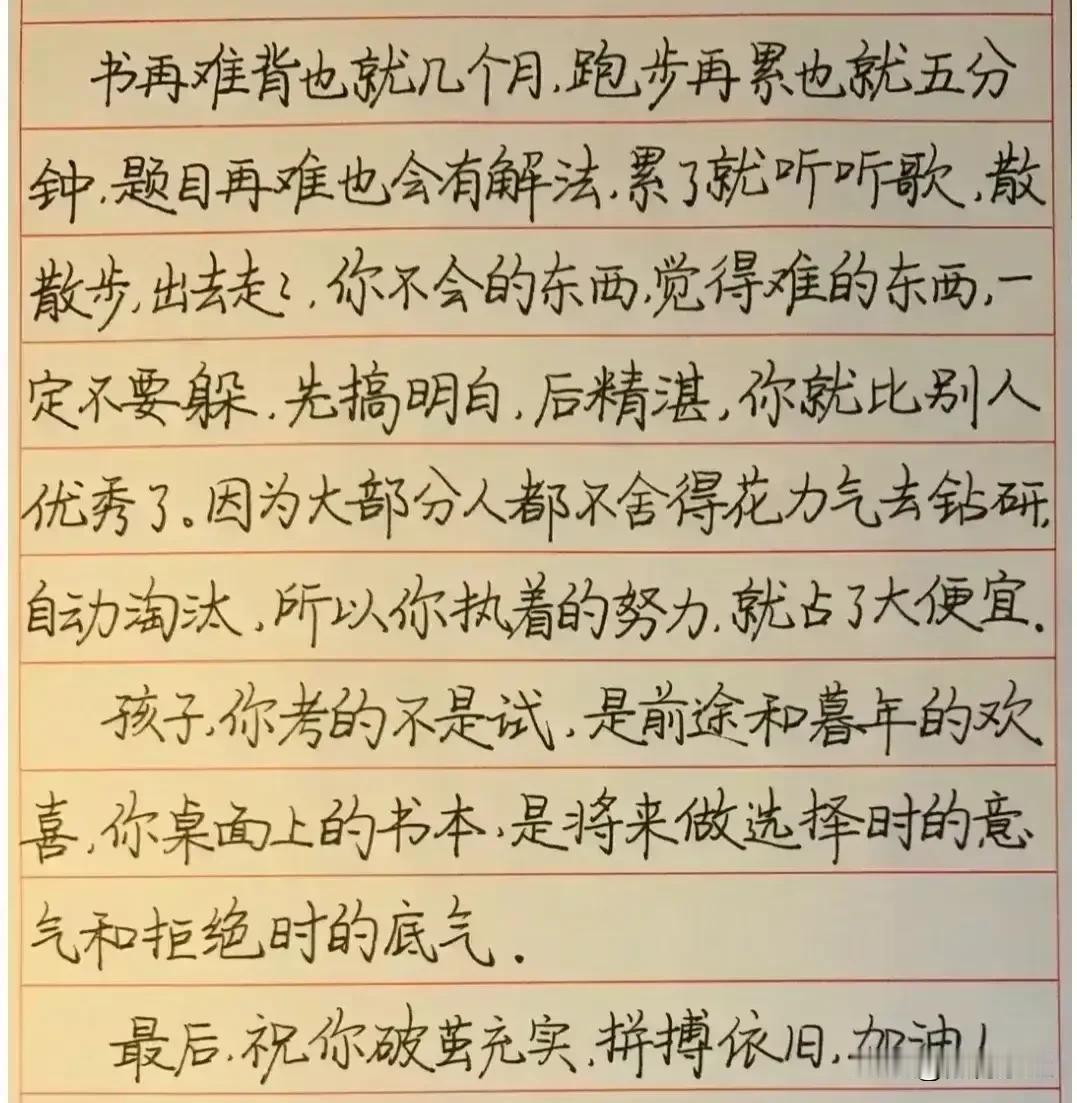 书再难背也就几个月,跑步再累也就五分
钟,题目再难也会有解法,累了就听听歌,散
散步,出去走々,你不会的东西,觉得难的东西,一
定不要躲,先搞明白,后精湛,你就比别人
优秀了。因为大部分人都不舍得花力气去钻研,
自动淘汰,所以你执着的努力,就占了大便宜.
孩子,你考的不是试,是前途和暮年的欢
喜,你桌面上的书本,是将来做选择时的意
气和拒绝时的底气.
最后,祝你破茧充实,拼搏依旧,加油!